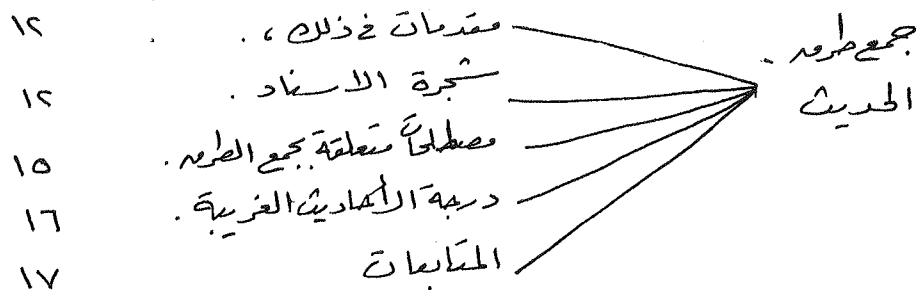 جمع طرق
الحديث
مقدمات في ذلك، . ١٢
شجرة الاسناد . ١٢
مصطلحات متعلقة بجمع الطرق . ١٥
درجة الأحاديث الغريبة . ١٦
المتابعات ١٧